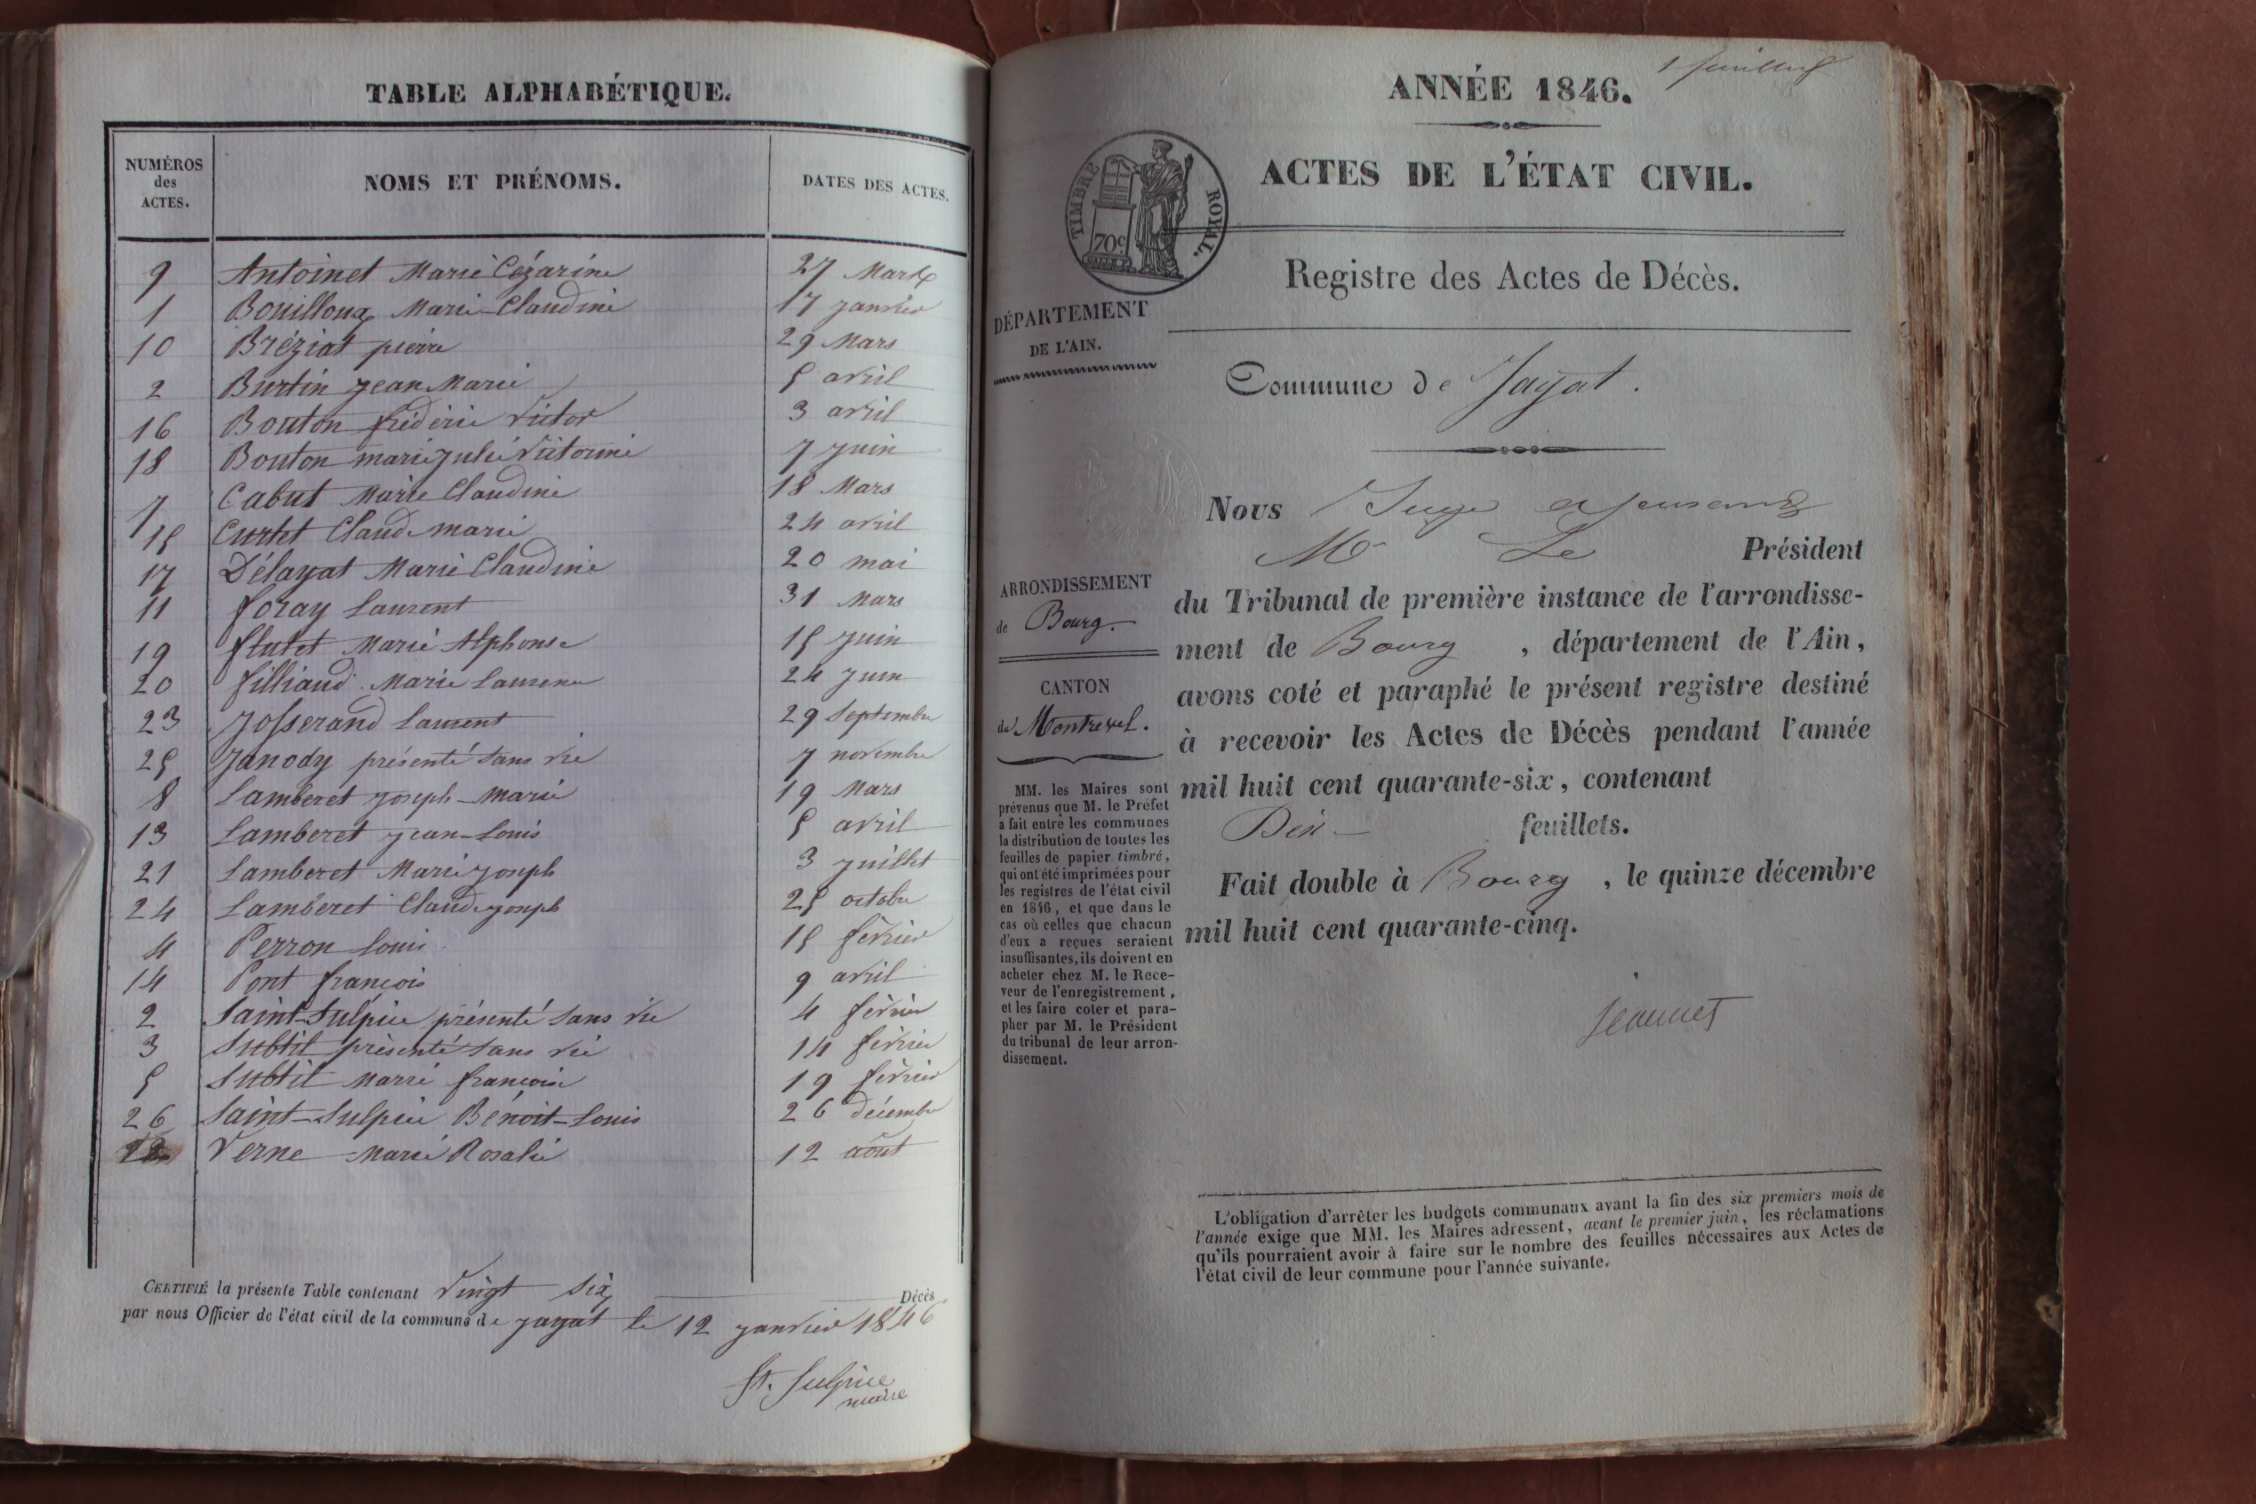 TABLE ALPHABÉTIQUE.
NUMÉROS des ACTES. NOMS ET PRÉNOMS. DATES DES ACTES.
9 Antoinet Marie Cézarine 27 Mars
1 Bouilloux Marie-Claudine 17 janvier
10 Bréziat pierre 29 Mars
2 Burtin jean Marie 5 avril
16 Bouton frédéric Victor 3 avril
18 Bouton marie julie Victorine 7 juin
7 Cabut Marie Claudine 18 Mars
15 Curtet Claude marie 24 avril
17 Délayat Marie Claudine 20 mai
11 foray Laurent 31 Mars
19 flutet Marie Alphonse 15 juin
20 filliaud Marie Laurence 24 juin
23 josserand Laurent 29 Septembre
25 janody présenté sans vie 7 novembre
8 Lamberet joseph-Marie 19 Mars
13 Lamberet jean-Louis 5 avril
21 Lamberet Marie joseph 3 juillet
24 Lamberet Claude joseph 25 octobre
4 Perron Louis 15 février
14 Pont françois 9 avril
2 Saint-Sulpice présenté sans vie 4 février
3 Subtil présenté sans vie 14 février
5 Subtil Marie françoise 19 février
26 Saint-Sulpice Bénoit-Louis 26 décembre
22 Verne Marie Rosalie 12 août
CERTIFIÉ la présente Table contenant Vingt six Décès
par nous Officier de l'état civil de la commune de jayat le 12 janvier 1846
St. Sulpice
maire
1 feuillet
ANNÉE 1846.
ACTES DE L'ÉTAT CIVIL.
TIMBRE ROYAL.
70c
Registre des Actes de Décès.
DÉPARTEMENT
DE L'AIN.
Commune de Jayat.
ARRONDISSEMENT
de Bourg.
CANTON
de Montrevel.
MM. les Maires sont
prévenus que M. le Préfet
a fait entre les communes
la distribution de toutes les
feuilles de papier timbré,
qui ont été imprimées pour
les registres de l'état civil
en 1846, et que dans le
cas où celles que chacun
d'eux a reçues seraient
insuffisantes, ils doivent en
acheter chez M. le Rece-
veur de l'enregistrement,
et les faire coter et para-
pher par M. le Président
du tribunal de leur arron-
dissement.
Nous Juge
Mr Le Président
du Tribunal de première instance de l'arrondisse-
ment de Bourg, département de l'Ain,
avons coté et paraphé le présent registre destiné
à recevoir les Actes de Décès pendant l'année
mil huit cent quarante-six, contenant
Dix feuillets.
Fait double à Bourg, le quinze décembre
mil huit cent quarante-cinq.
Jeannet
L'obligation d'arrêter les budgets communaux avant la fin des six premiers mois de
l'année exige que MM. les Maires adressent, avant le premier juin, les réclamations
qu'ils pourraient avoir à faire sur le nombre des feuilles nécessaires aux Actes de
l'état civil de leur commune pour l'année suivante.